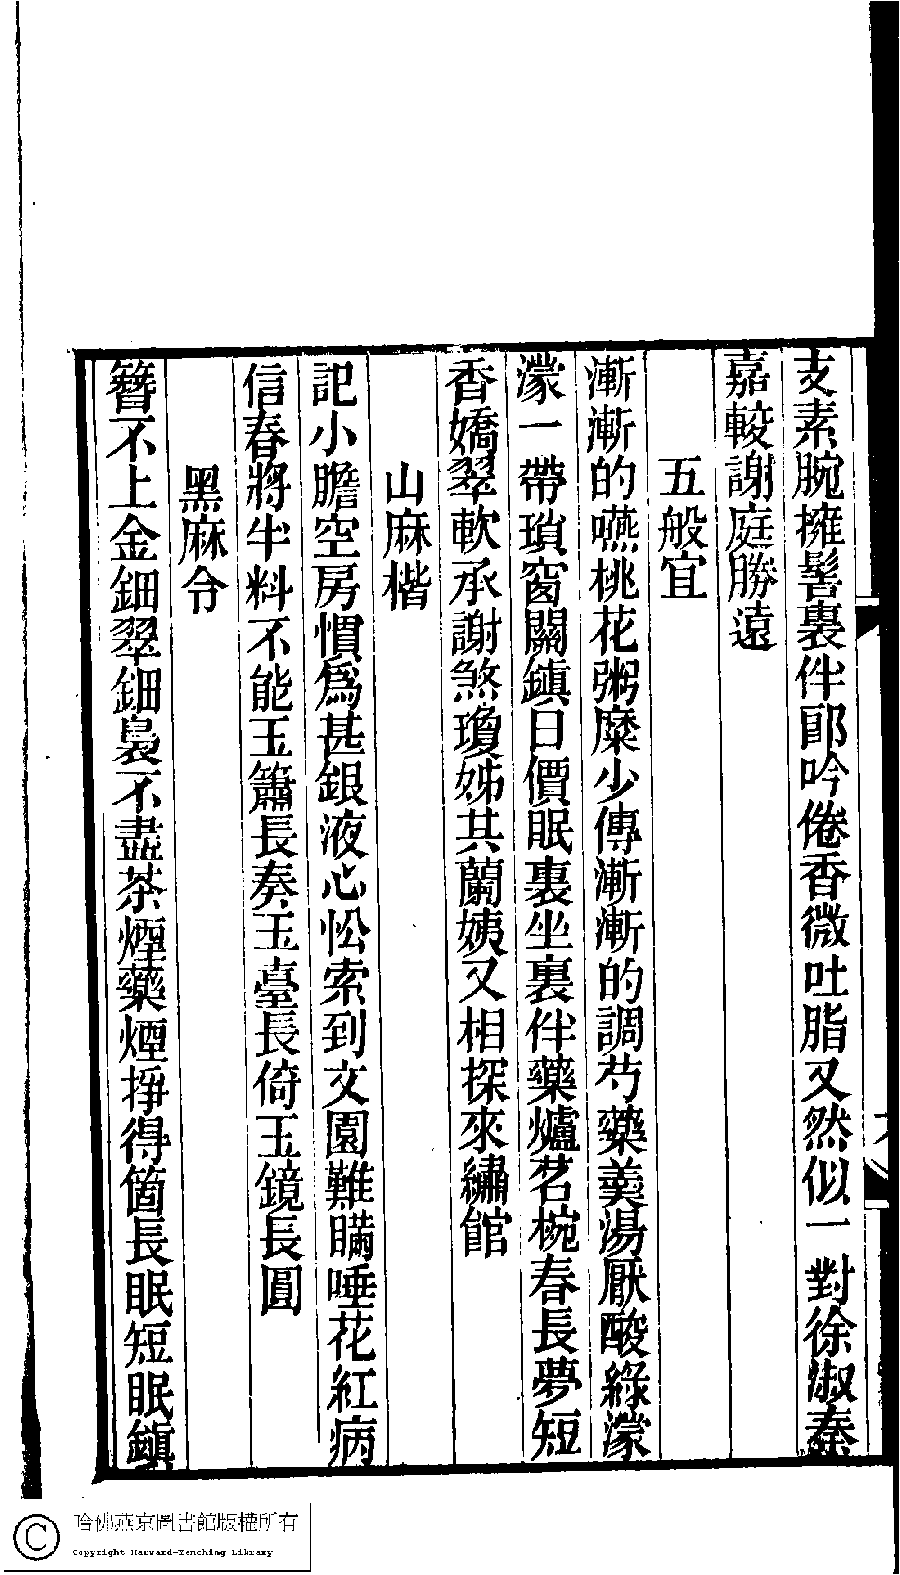 支素腕擁髻裏伴郎吟倦香微吐脂又然似一對徐淑秦
嘉較謝庭勝遠
五般宜
漸漸的嚥桃花粥糜少傳漸漸的調芍藥羹湯厭酸綠濛
濛一帶瑣窗關鎮日價眠裏坐裏伴藥爐茗椀春長夢短
香嬌翠軟承謝煞瓊姊共蘭姨又相探來繡館
山麻楷
記小膽空房慣爲甚銀液心忪索到文園難瞞唾花紅病
信春將半料不能玉簫長奏玉臺長倚玉鏡長圓
黑麻令
簪不上金鈿翠鈿裊不盡茶煙藥煙掙得箇長眠短眠鎮
哈佛燕京圖書館版權所有
Copyright Harvard-Yenching Library